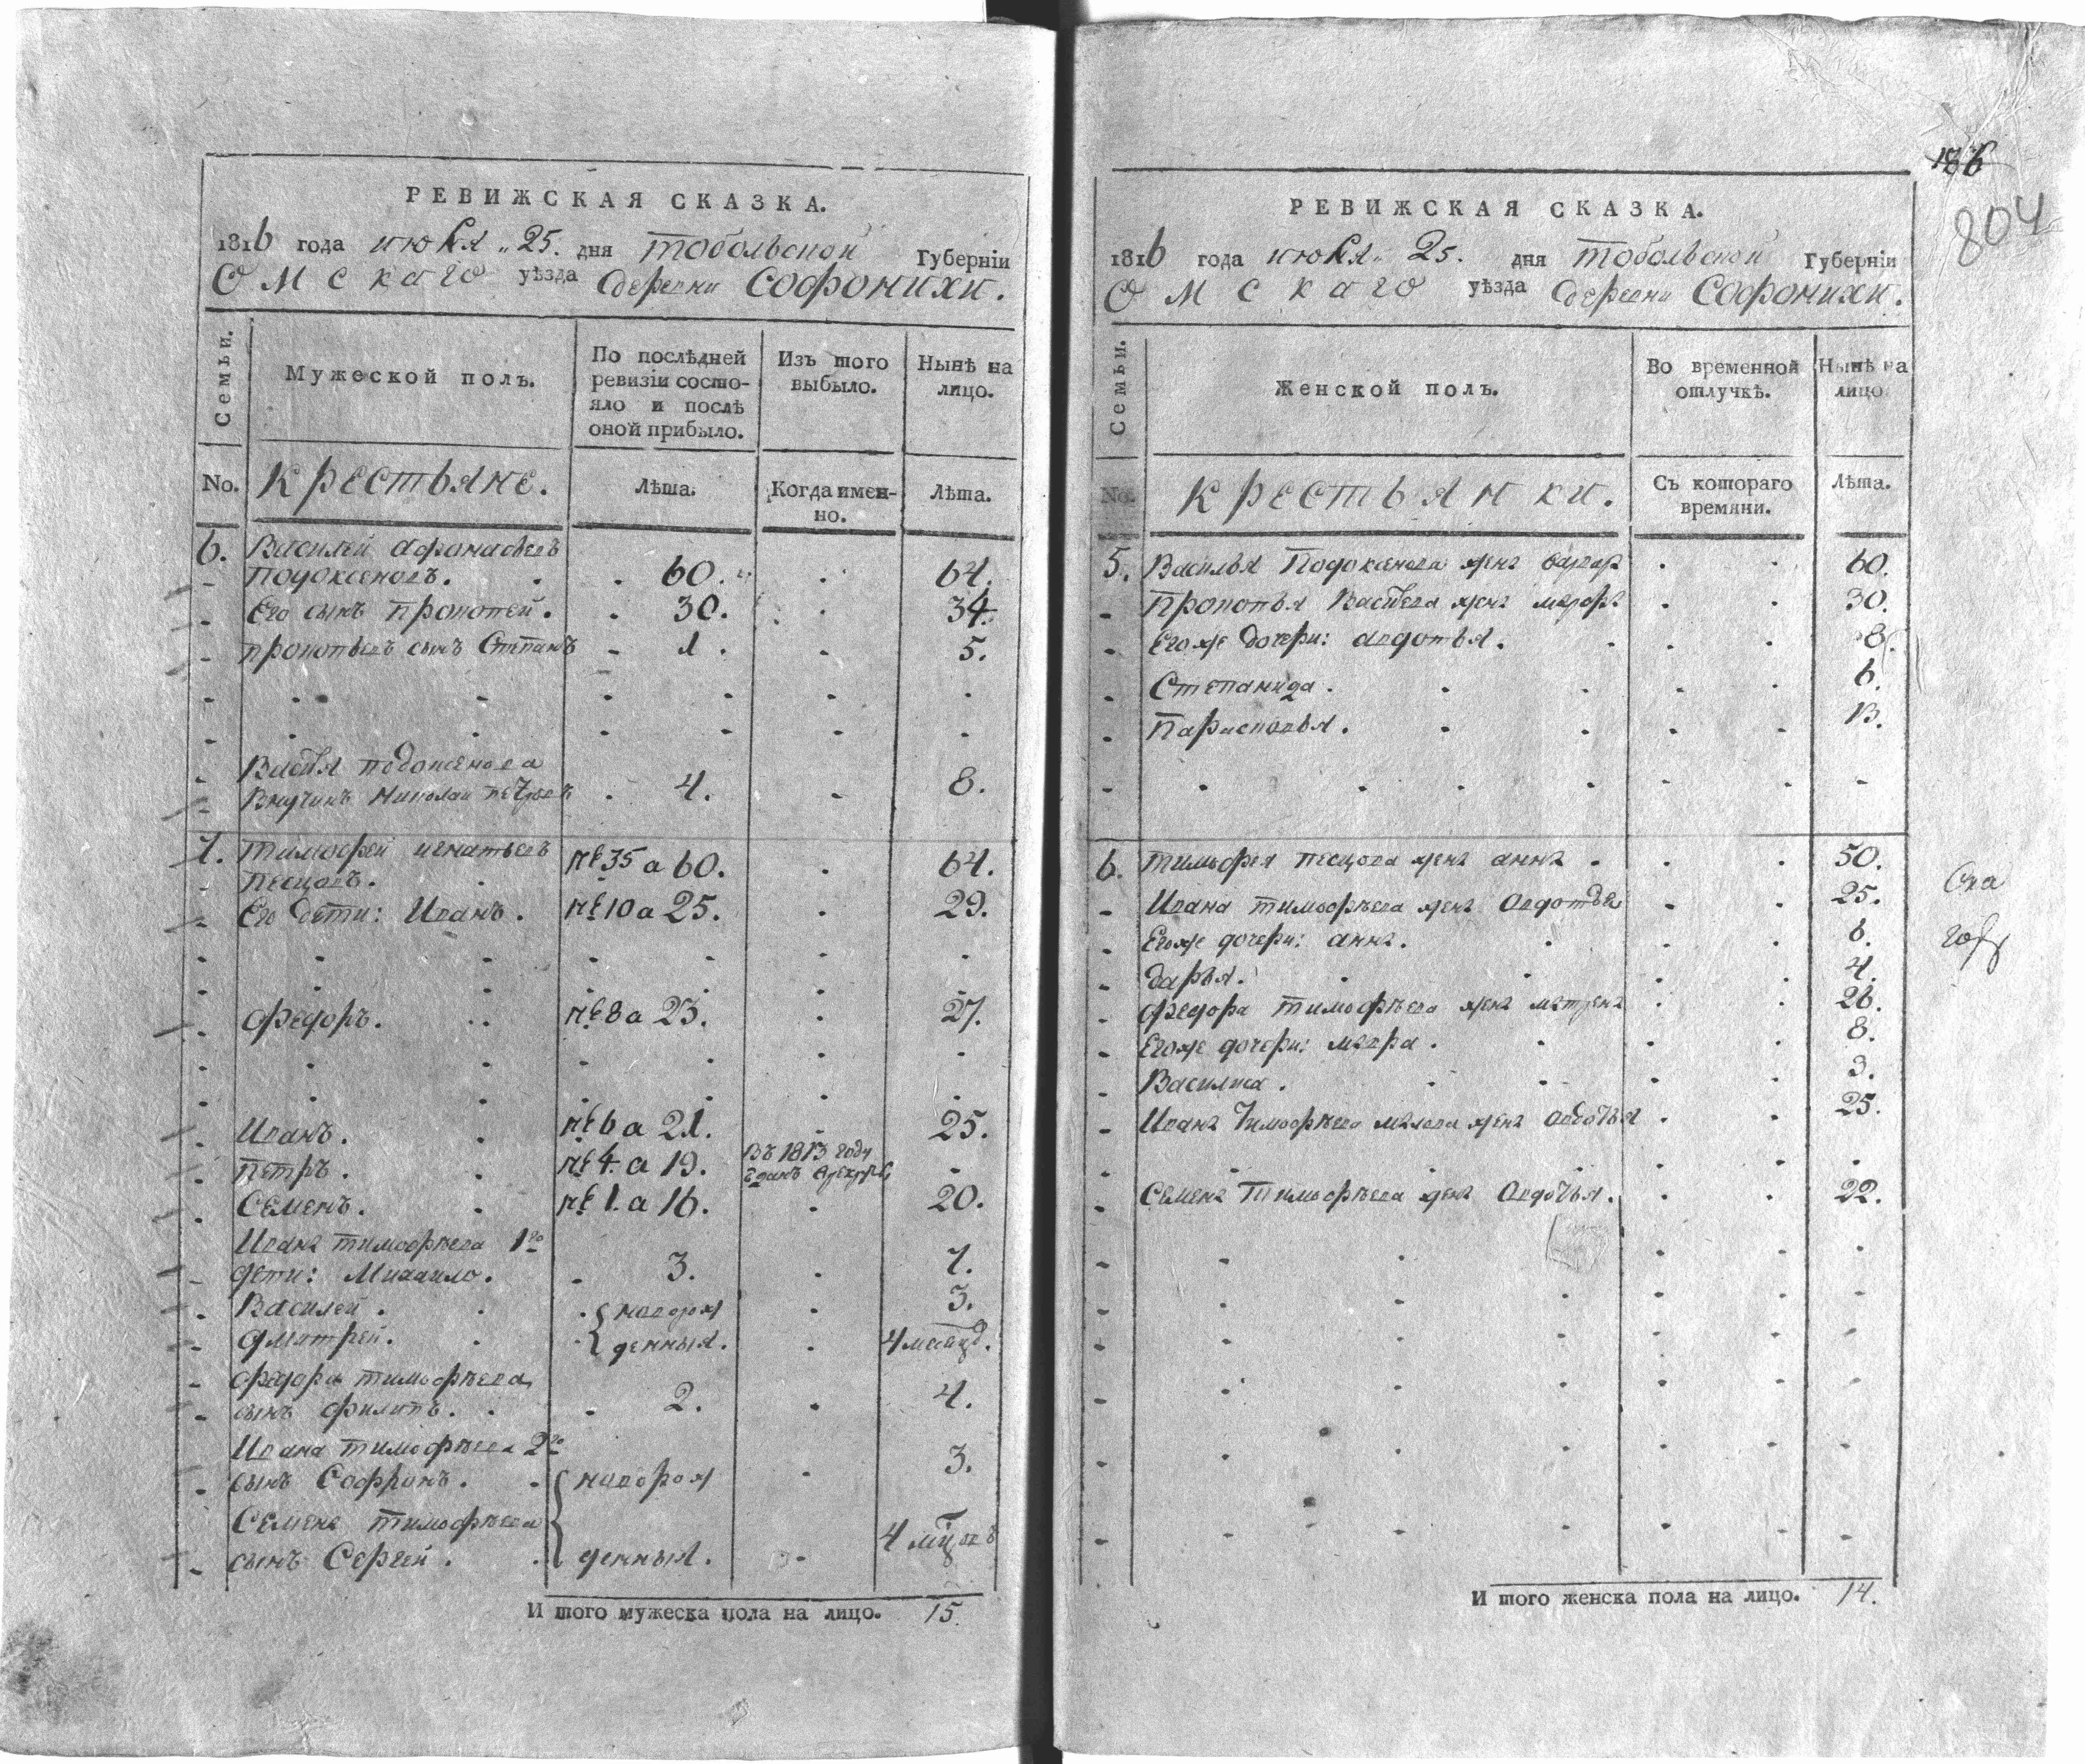 РЕВИЖСКАЯ СКАЗКА.
1816 года июля 25. дня Тобольской Губерніи
Омскаго уѣзда деревни Софонихи.
Семьи.
Мужеской полъ.
По послѣдней ревизіи состо-
яло и послѣ
оной прибыло.
Изъ того выбыло.
Нынѣ на лицо.
No. Крестьяне.
Лѣта.
Когда имен-
но.
Лѣта.
6. Василей Афонасьевъ
Подоксеновъ. 60. 64.
Его сынъ Прокопей. 30. 34.
Прокопьевъ сынъ Степанъ 1. 5.
Васѣлья Подоксенова
внучикъ Николай Петровъ 4. 8.
7. Тимофей Игнатьевъ
Песцовъ. не 35 а 60. 64.
Его дети: Иванъ. не 10 а 25. 29.
Федоръ. не 8 а 23. 27.
Иванъ. не 6 а 21. 25.
Петръ. не 4. а 19. Въ 1813 году
зданъ врекруты
Семенъ. не 1. а 16. 20.
Ивана Тимофѣева 1го
дети: Михайло. 3. 7.
Василей. 3.
Дмитрей. новорож
денныя. 4 месяц.
Федора Тимофѣева
сынъ Филипъ. 2. 4.
Ивана Тимофѣева 2го
сынъ Софронъ. новорож 3.
Семена Тимофѣева
сынъ Сергей. денныя. 4 мцовъ
И того мужеска пола на лицо. 15.
186
804
РЕВИЖСКАЯ СКАЗКА.
1816 года июля 25. дня Тобольской Губерніи
Омскаго уѣзда деревни Софонихи.
Семьи.
Женской полъ.
Во временной
отлучкѣ.
Нынѣ на
лицо
No. Крестьянки.
Съ котораго
времяни.
Лѣта.
5. Василья Подоксенова жена 60.
Прокопья Васильева жена марфа 30.
Егоже дочери: авдотья. 8.
Степанида. 6.
Парасковья. 3.
6. Тимофея Песцова жена анна 50.
Ивана Тимофѣева жена Авдотья 25.
Егоже дочери: анна. 6.
дарья. 4.
Федора Тимофѣева жена матрена 26.
Егоже дочери: мавра. 8.
Василиса. 3.
Ивана Тимофѣева малова жена Авдотья 25.
Семена Тимофѣева жена Авдотья. 22.
И того женска пола на лицо. 14.